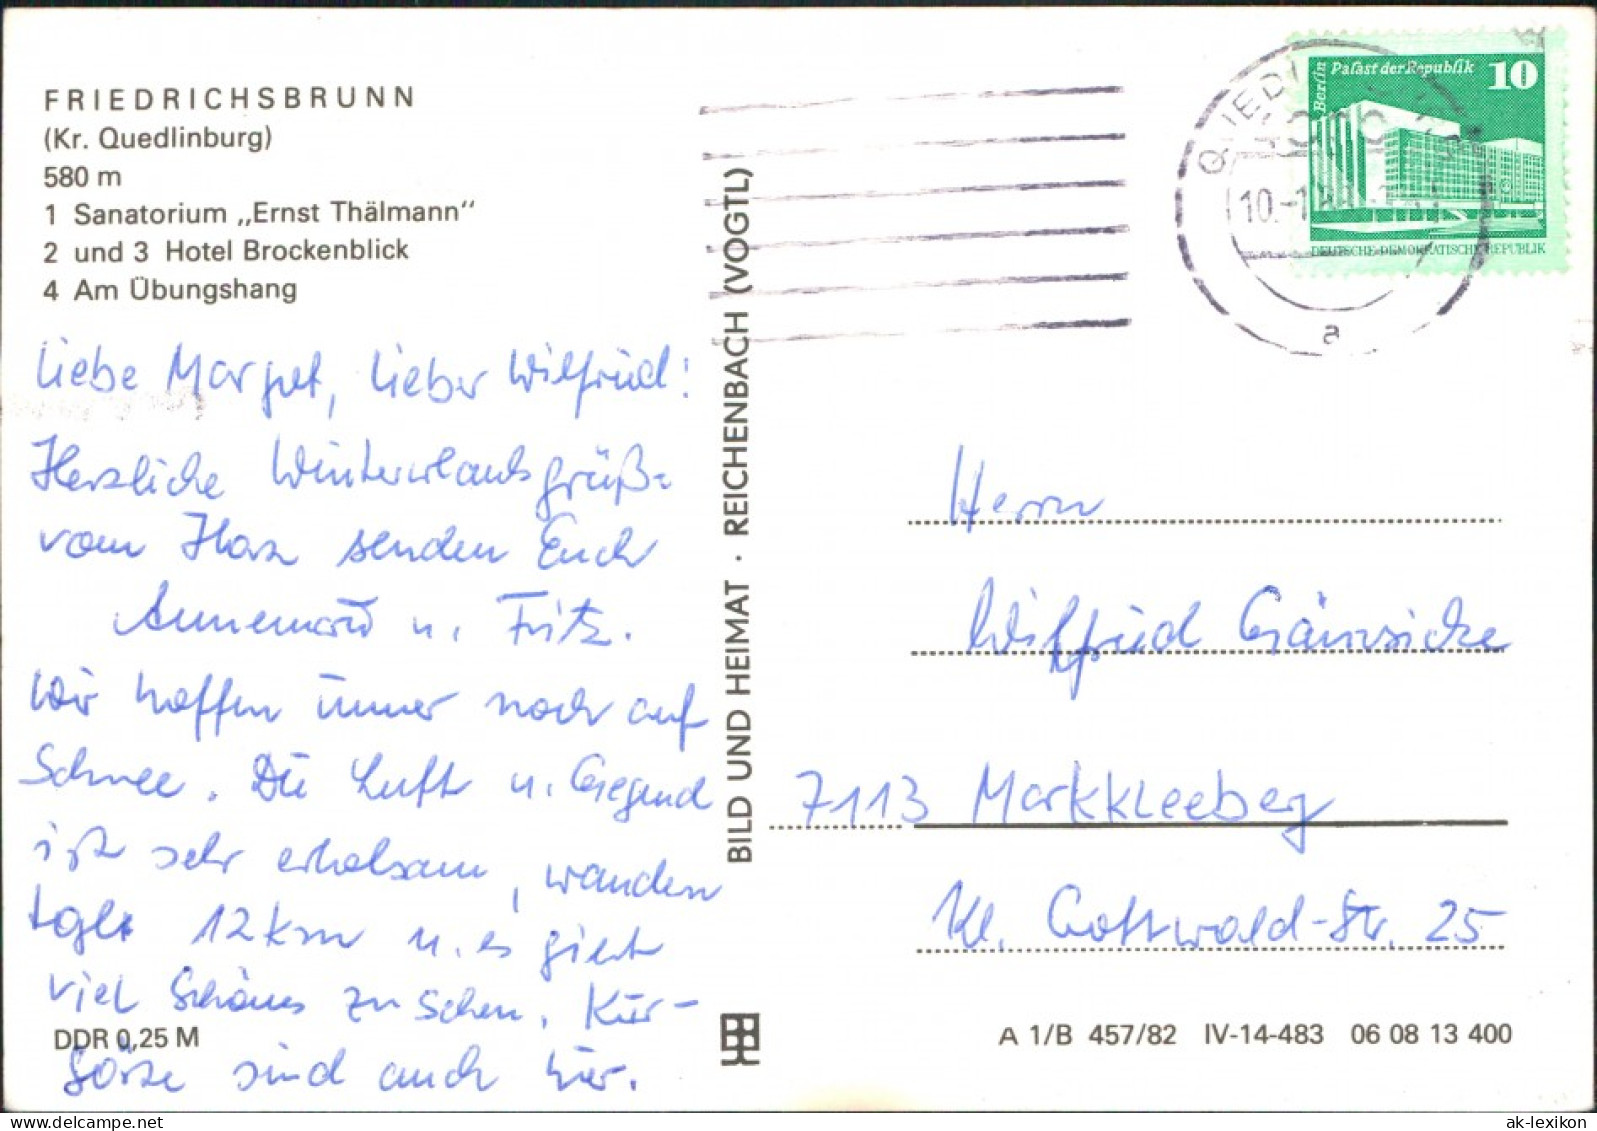 FRIEDRICHSBRUNN
(Kr. Quedlinburg)
580 m
1 Sanatorium „Ernst Thälmann“
2 und 3 Hotel Brockenblick
4 Am Übungshang
Liebe Margret, lieber Wilfried!
Herzliche Winterurlaubsgrüße
vom Harz senden Euch
Annemarie u. Fritz.
Wir hoffen immer noch auf
Schnee. Die Luft u. Gegend
ist sehr erholsam, wandern
tgl. 12 km u. es gibt
viel Schönes zu sehen. Kur-
gäste sind auch hier.
DDR 0,25 M
BILD UND HEIMAT · REICHENBACH (VOGTL)
Berlin Palast der Republik 10
DEUTSCHE DEMOKRATISCHE REPUBLIK
10.-1
a
Herrn
Wilfried Gänsicke
7113 Markkleeberg
Kl. Gottwald-Str. 25
A 1/B 457/82 IV-14-483 06 08 13 400
ak-lexikon